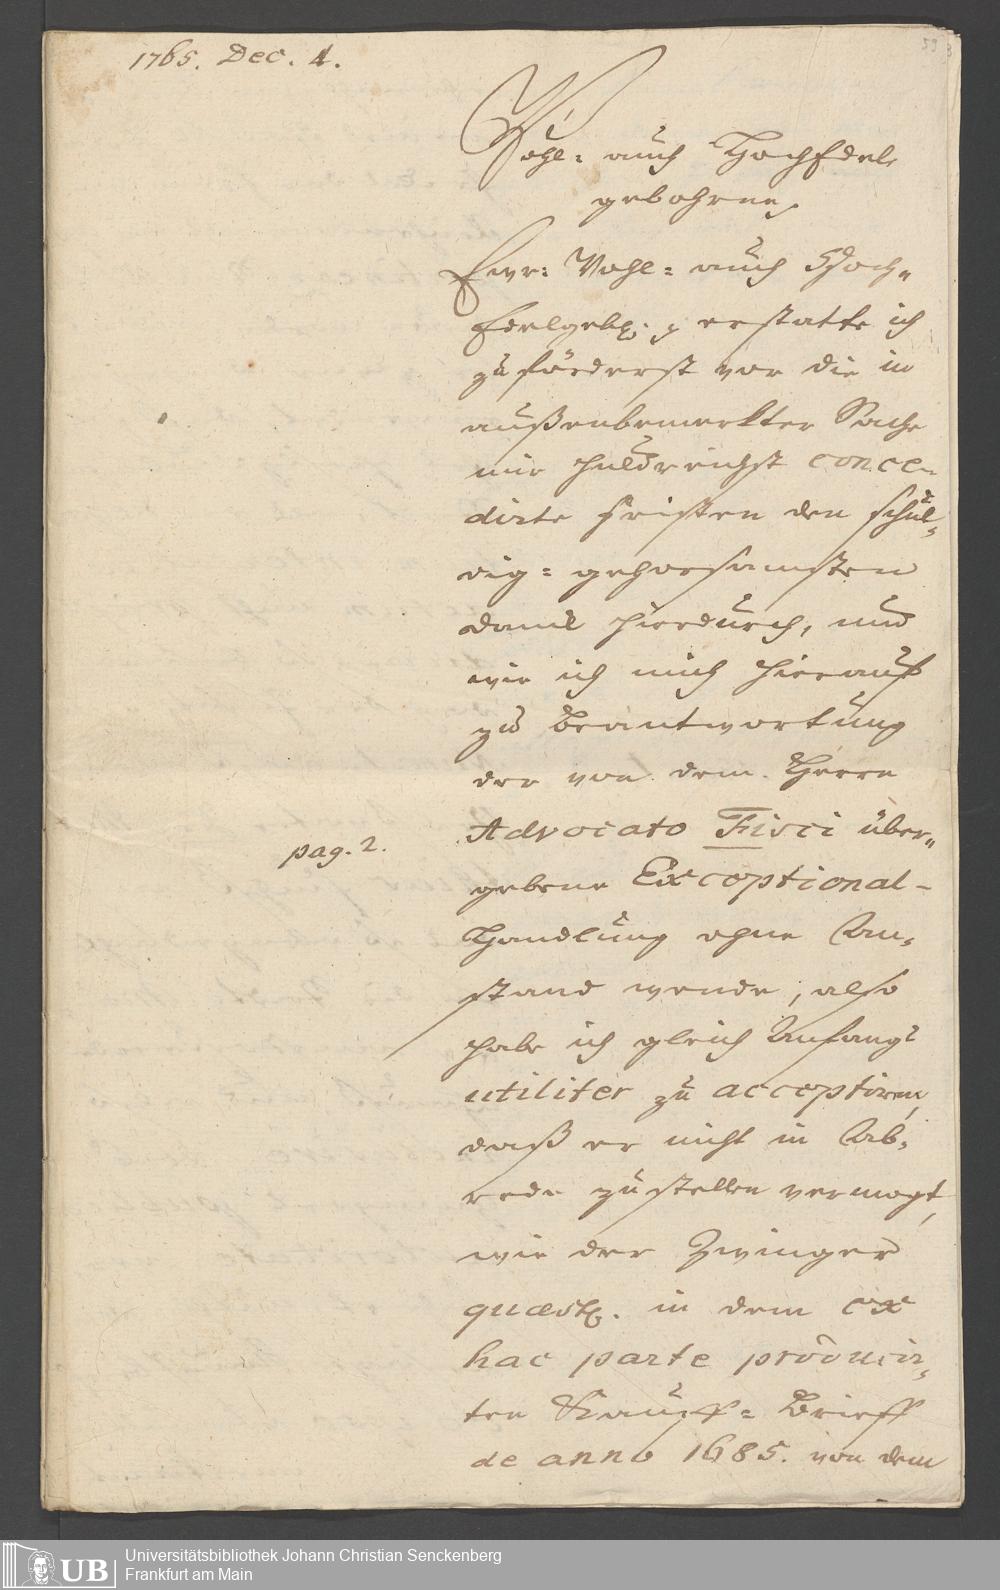 1765. Dec. 4.
53
Wohl- auch HochEdel-
gebohrne,
Ewr: Wohl- auch Hoch-
Edelgeb. p erstatte ich
zuförderst vor die in
außenbemerkter Sache
mir huldreichst conce-
dirte Fristen den schul-
dig- gehorsamsten
Danck hierdurch, und
wie ich mich hierauf
zu Beantwortung
der von dem Herrn
Advocato Fisci über-
pag. 2.
gebene Exceptional-
Handlung ohne An-
stand wende, also
habe ich gleich Anfangs
utiliter zu acceptiren,
daß er nicht in Ab-
rede zustellen vermogt,
wie der Zwinger
quaest. in dem ex
hac parte producir-
ten Kauff- Brieff
de anno 1685. von dem
UB
Universitätsbibliothek Johann Christian Senckenberg
Frankfurt am Main